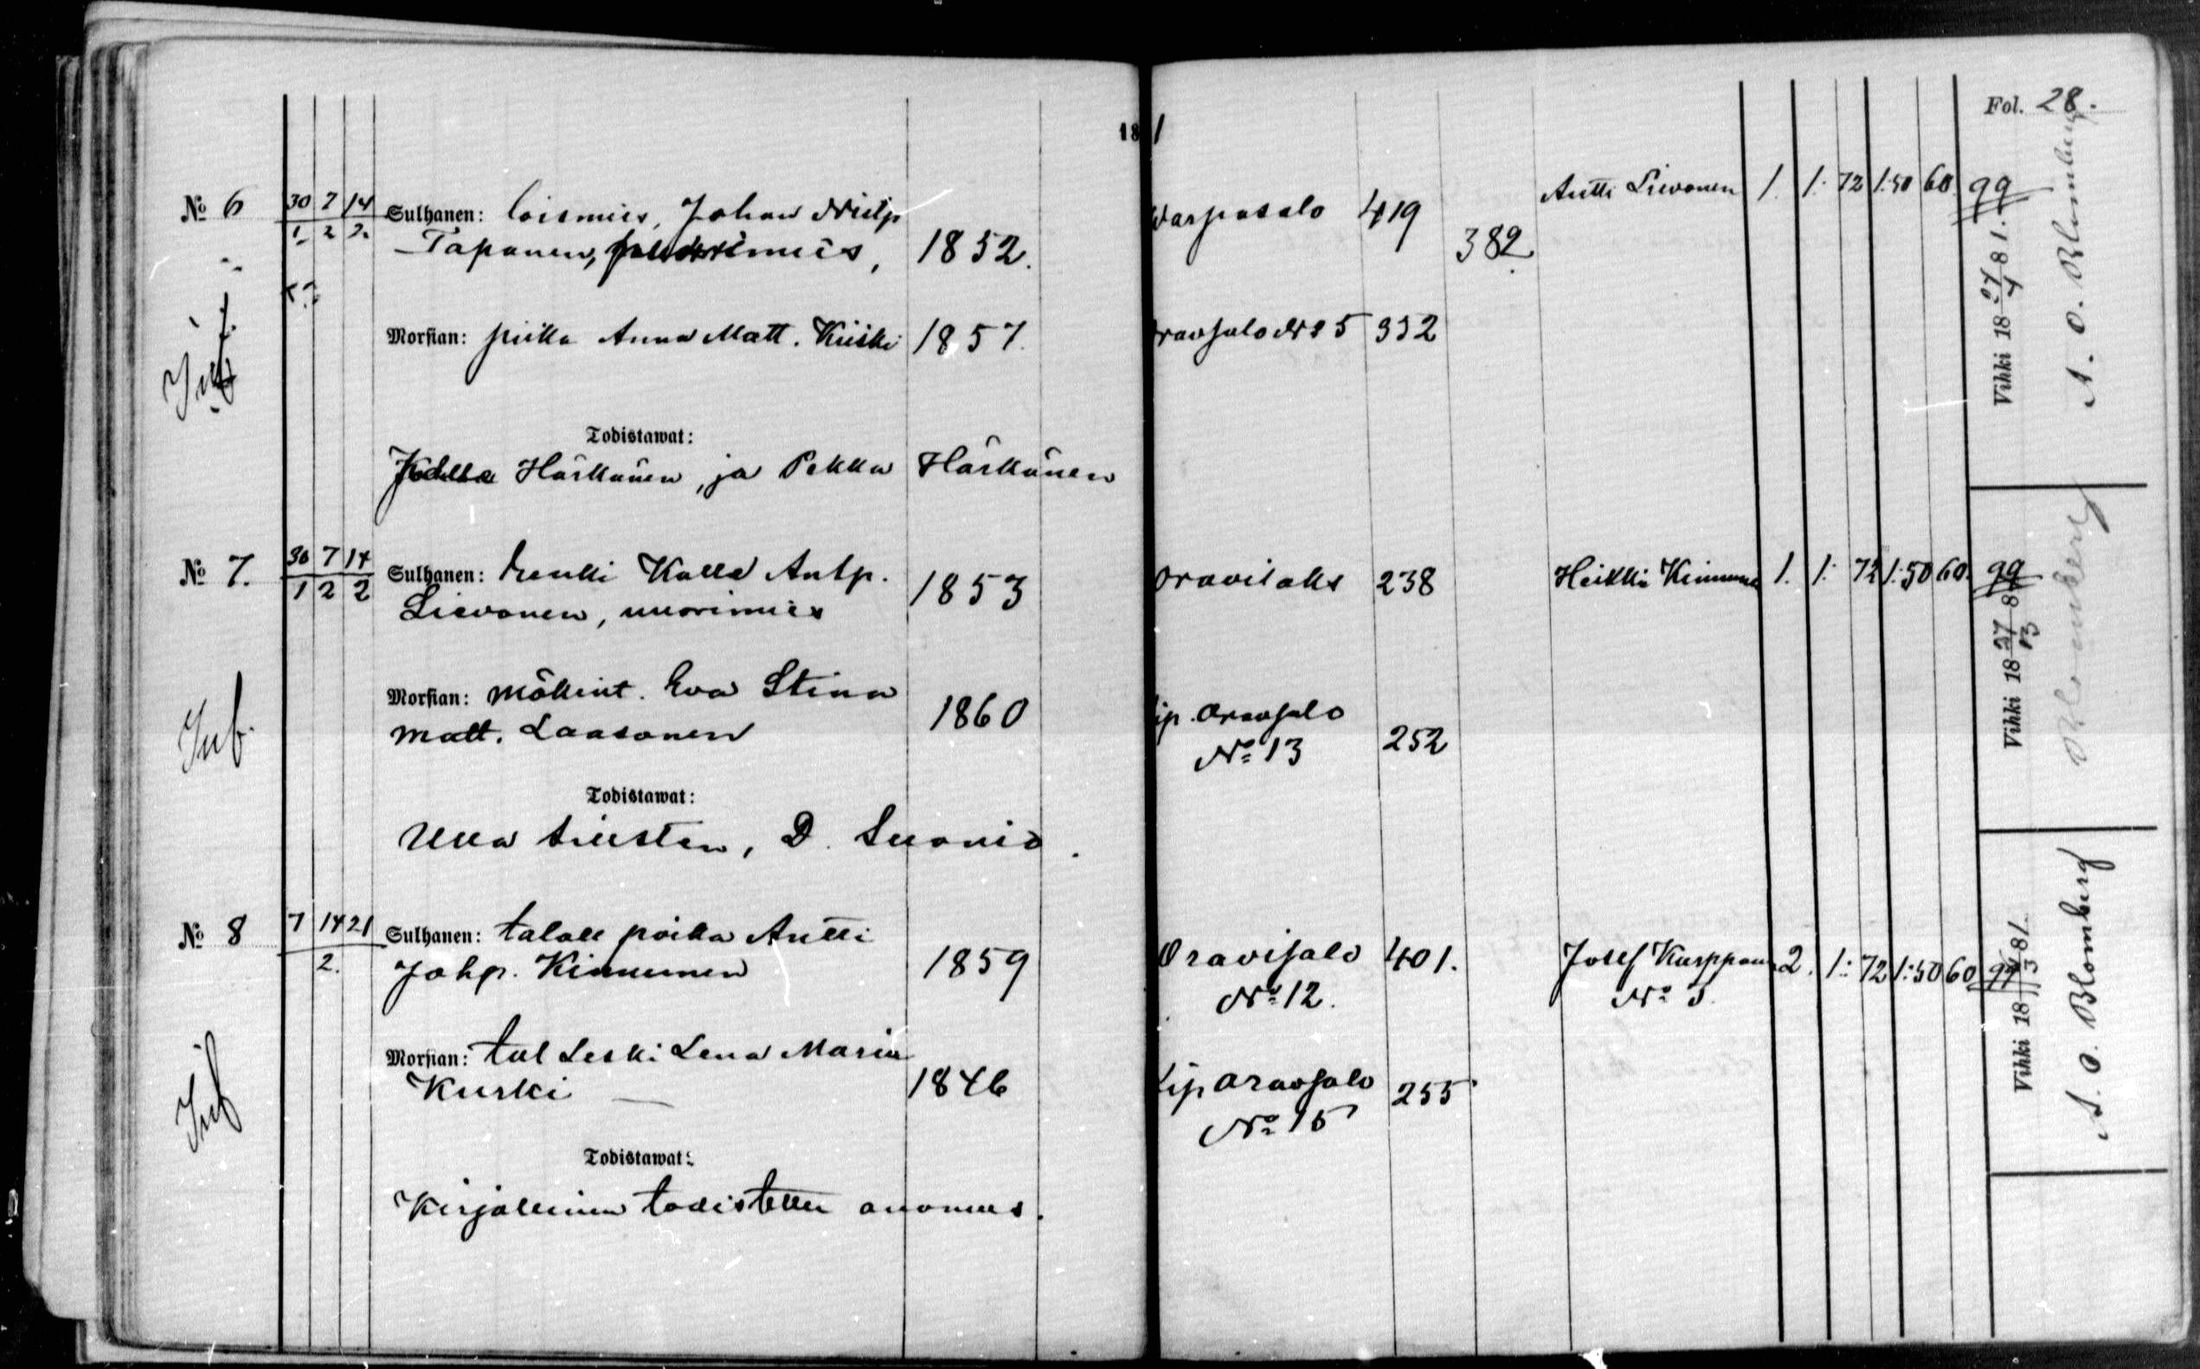 18 1
Fol. 28.
№ 6 30 7 14 Sulhanen: loismies, Johan
1 2 2 Tapanen, 1852. Warpasalo 419 382 Antti Lievonen 1. 1: 72 1:50 60 99
Morsian: piika Anna Matt. Kiiski 1857. Oravsalo № 5 332
Inb.
Todistawat:
Härkänen, ja Pekka Härkänen
Vihki 18 27/4 81.
A. O. Blomberg
№ 7. 30 7 14 Sulhanen: renki Kalle Antp.
1 2 2 Lievonen, nuorimies 1853 Oravilaks 238 Heikki Kinnunen 1. 1: 72 1:50 60. 99
Morsian: mökint. Eva Stina
Matt. Laasonen 1860 Lip. Oravsalo № 13 252
Inb.
Todistawat:
Ulla Sirsten, D. Suonio.
Vihki 18 27/3 8
Blomberg
№ 8 7 14 21 Sulhanen: talall poika Antti
2. Johp. Kinnunen 1859 Oravisalo № 12. 401. Josef Karppanen № 5. 2. 1: 72 1:50 60 99
Morsian: tal Leski Lena Maria
Kurki — 1846 Lip Oravsalo № 15 255
Inb
Todistawat:
Kirjallinen todistettu anomus.
Vihki 18 /3 81.
A. O. Blomberg